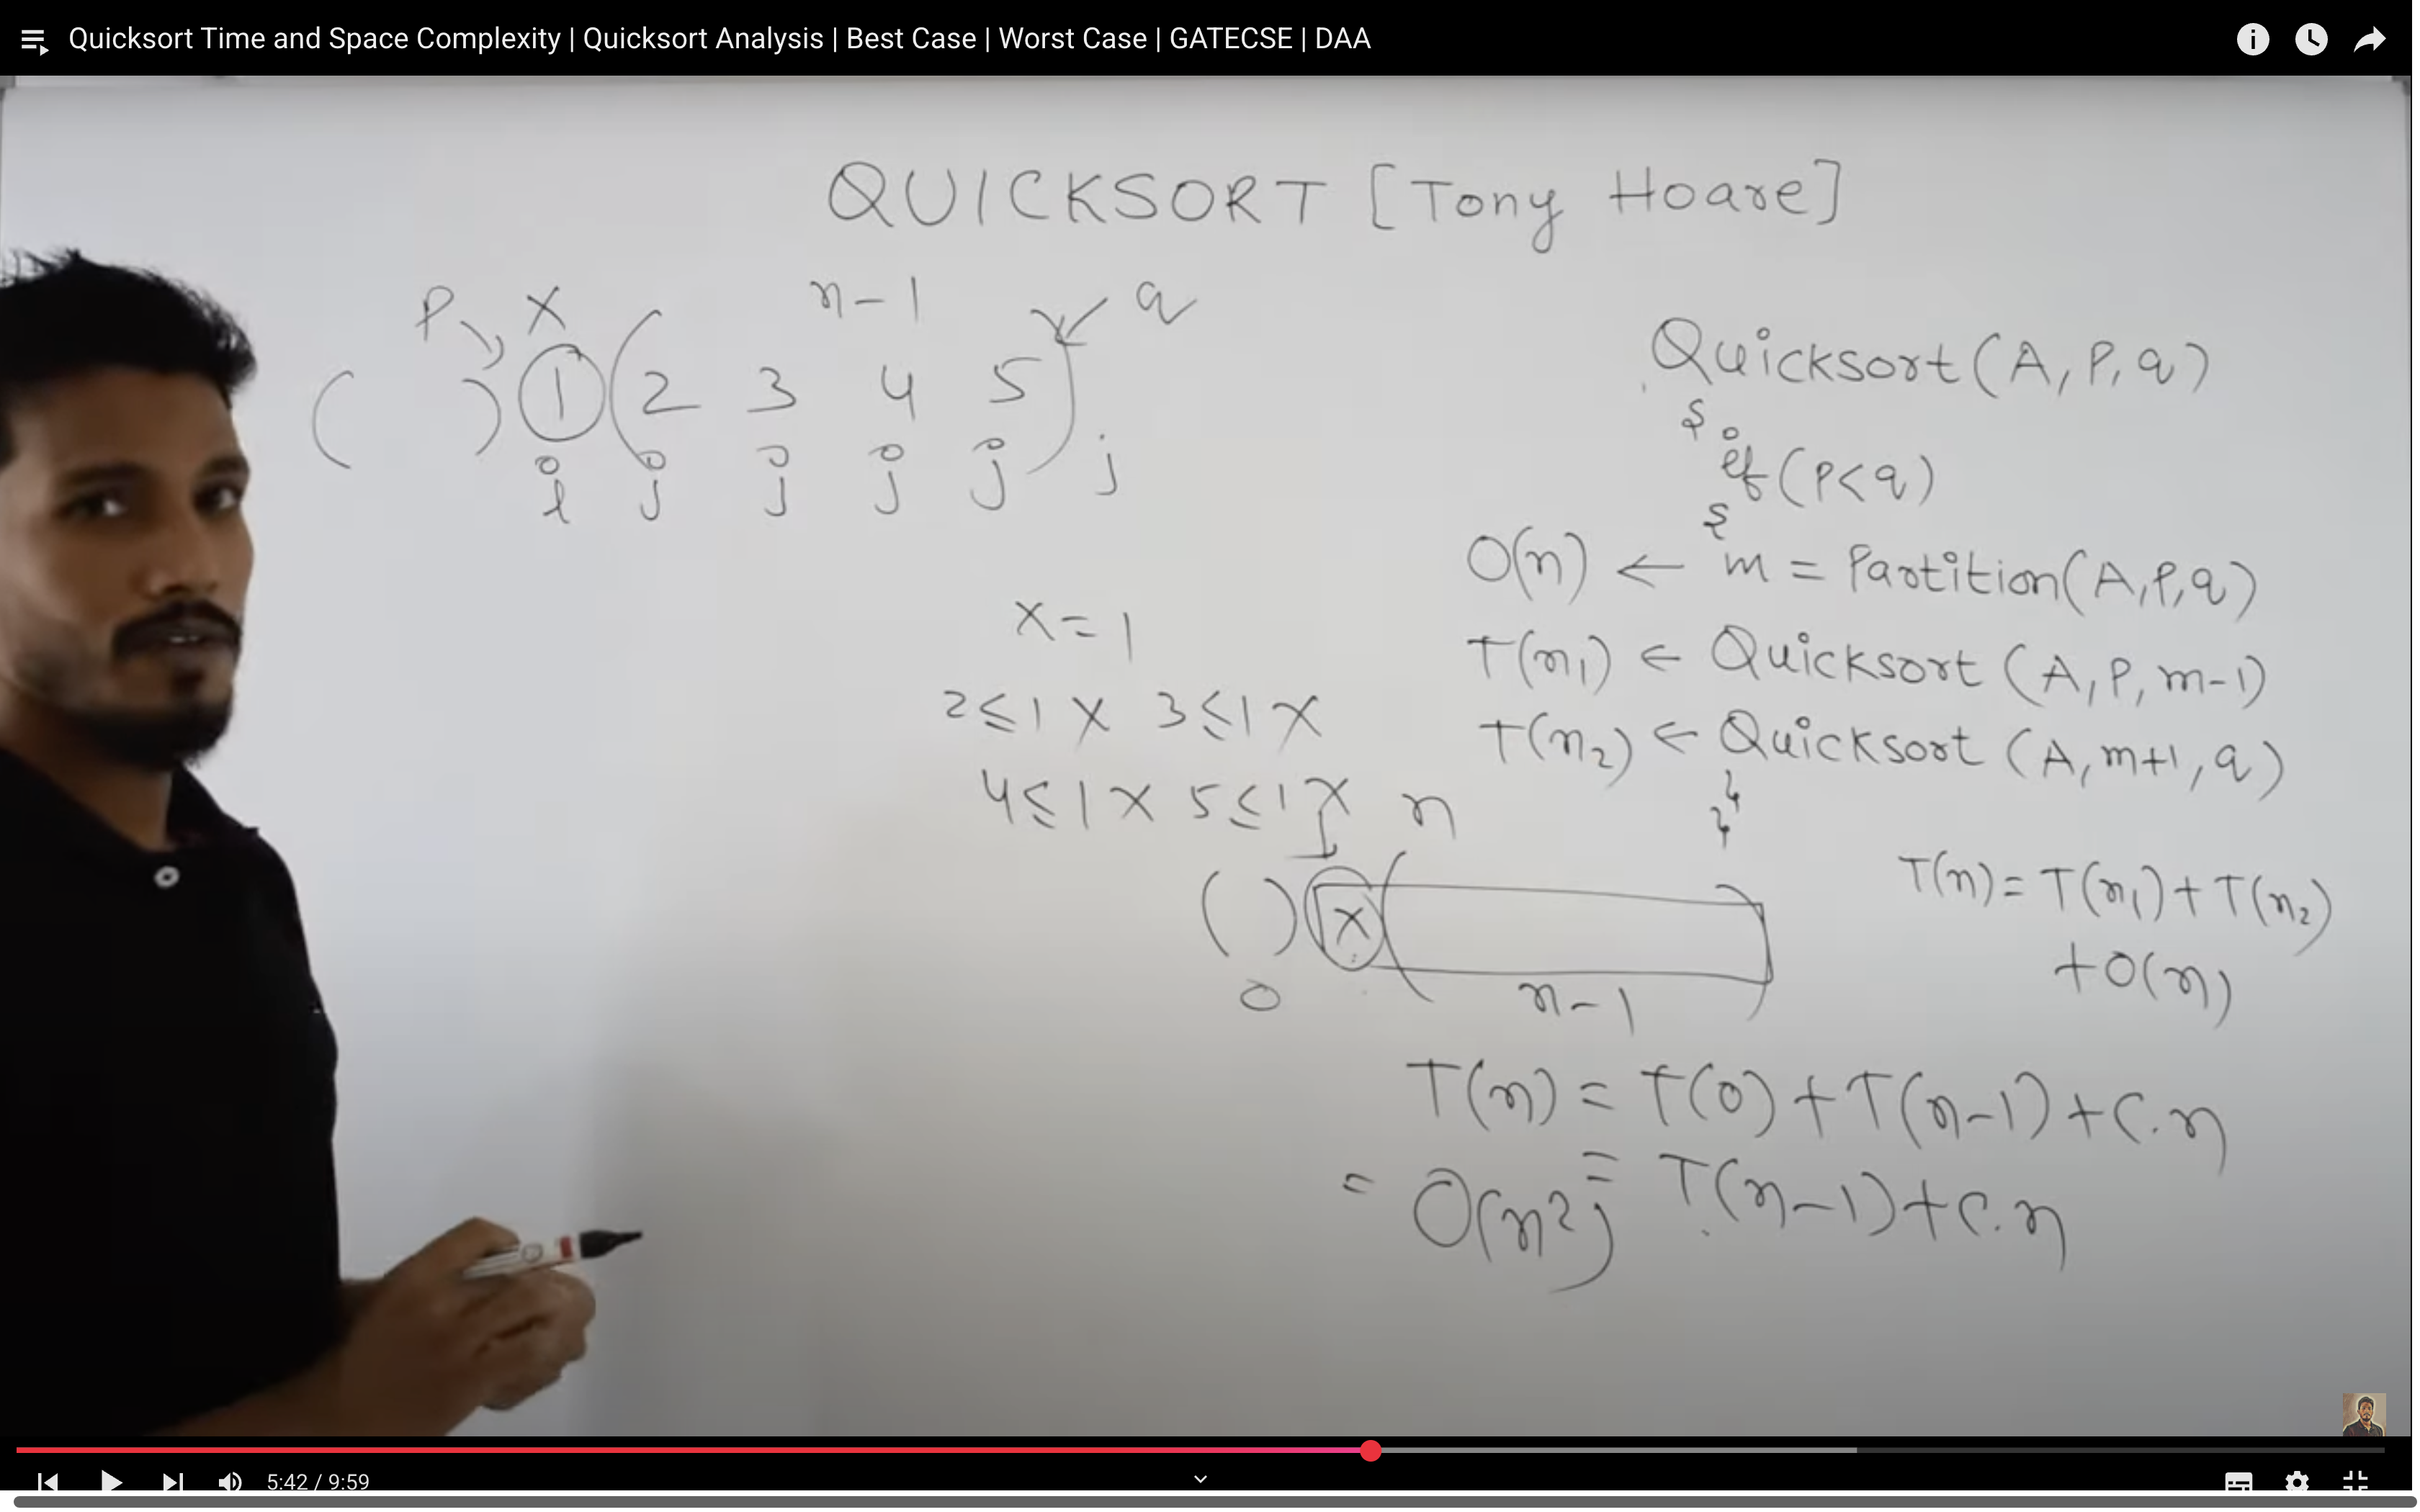 Quicksort Time and Space Complexity | Quicksort Analysis | Best Case | Worst Case | GATECSE | DAA
QUICKSORT [Tony Hoare]
P X n-1 q
( ) 1 (2 3 4 5)
i j j j j j
x = 1
2 ≤ 1 X 3 ≤ 1 X
4 ≤ 1 X 5 ≤ 1 X
n
( ) X ( )
0 n-1
Quicksort(A, P, q)
{
if (P < q)
{
O(n) ← m = Partition(A, P, q)
T(n1) ← Quicksort (A, P, m-1)
T(n2) ← Quicksort (A, m+1, q)
}
}
T(n) = T(n1) + T(n2)
+ O(n)
T(n) = T(0) + T(n-1) + C.n
= T(n-1) + C.n
= O(n²)
5:42 / 9:59